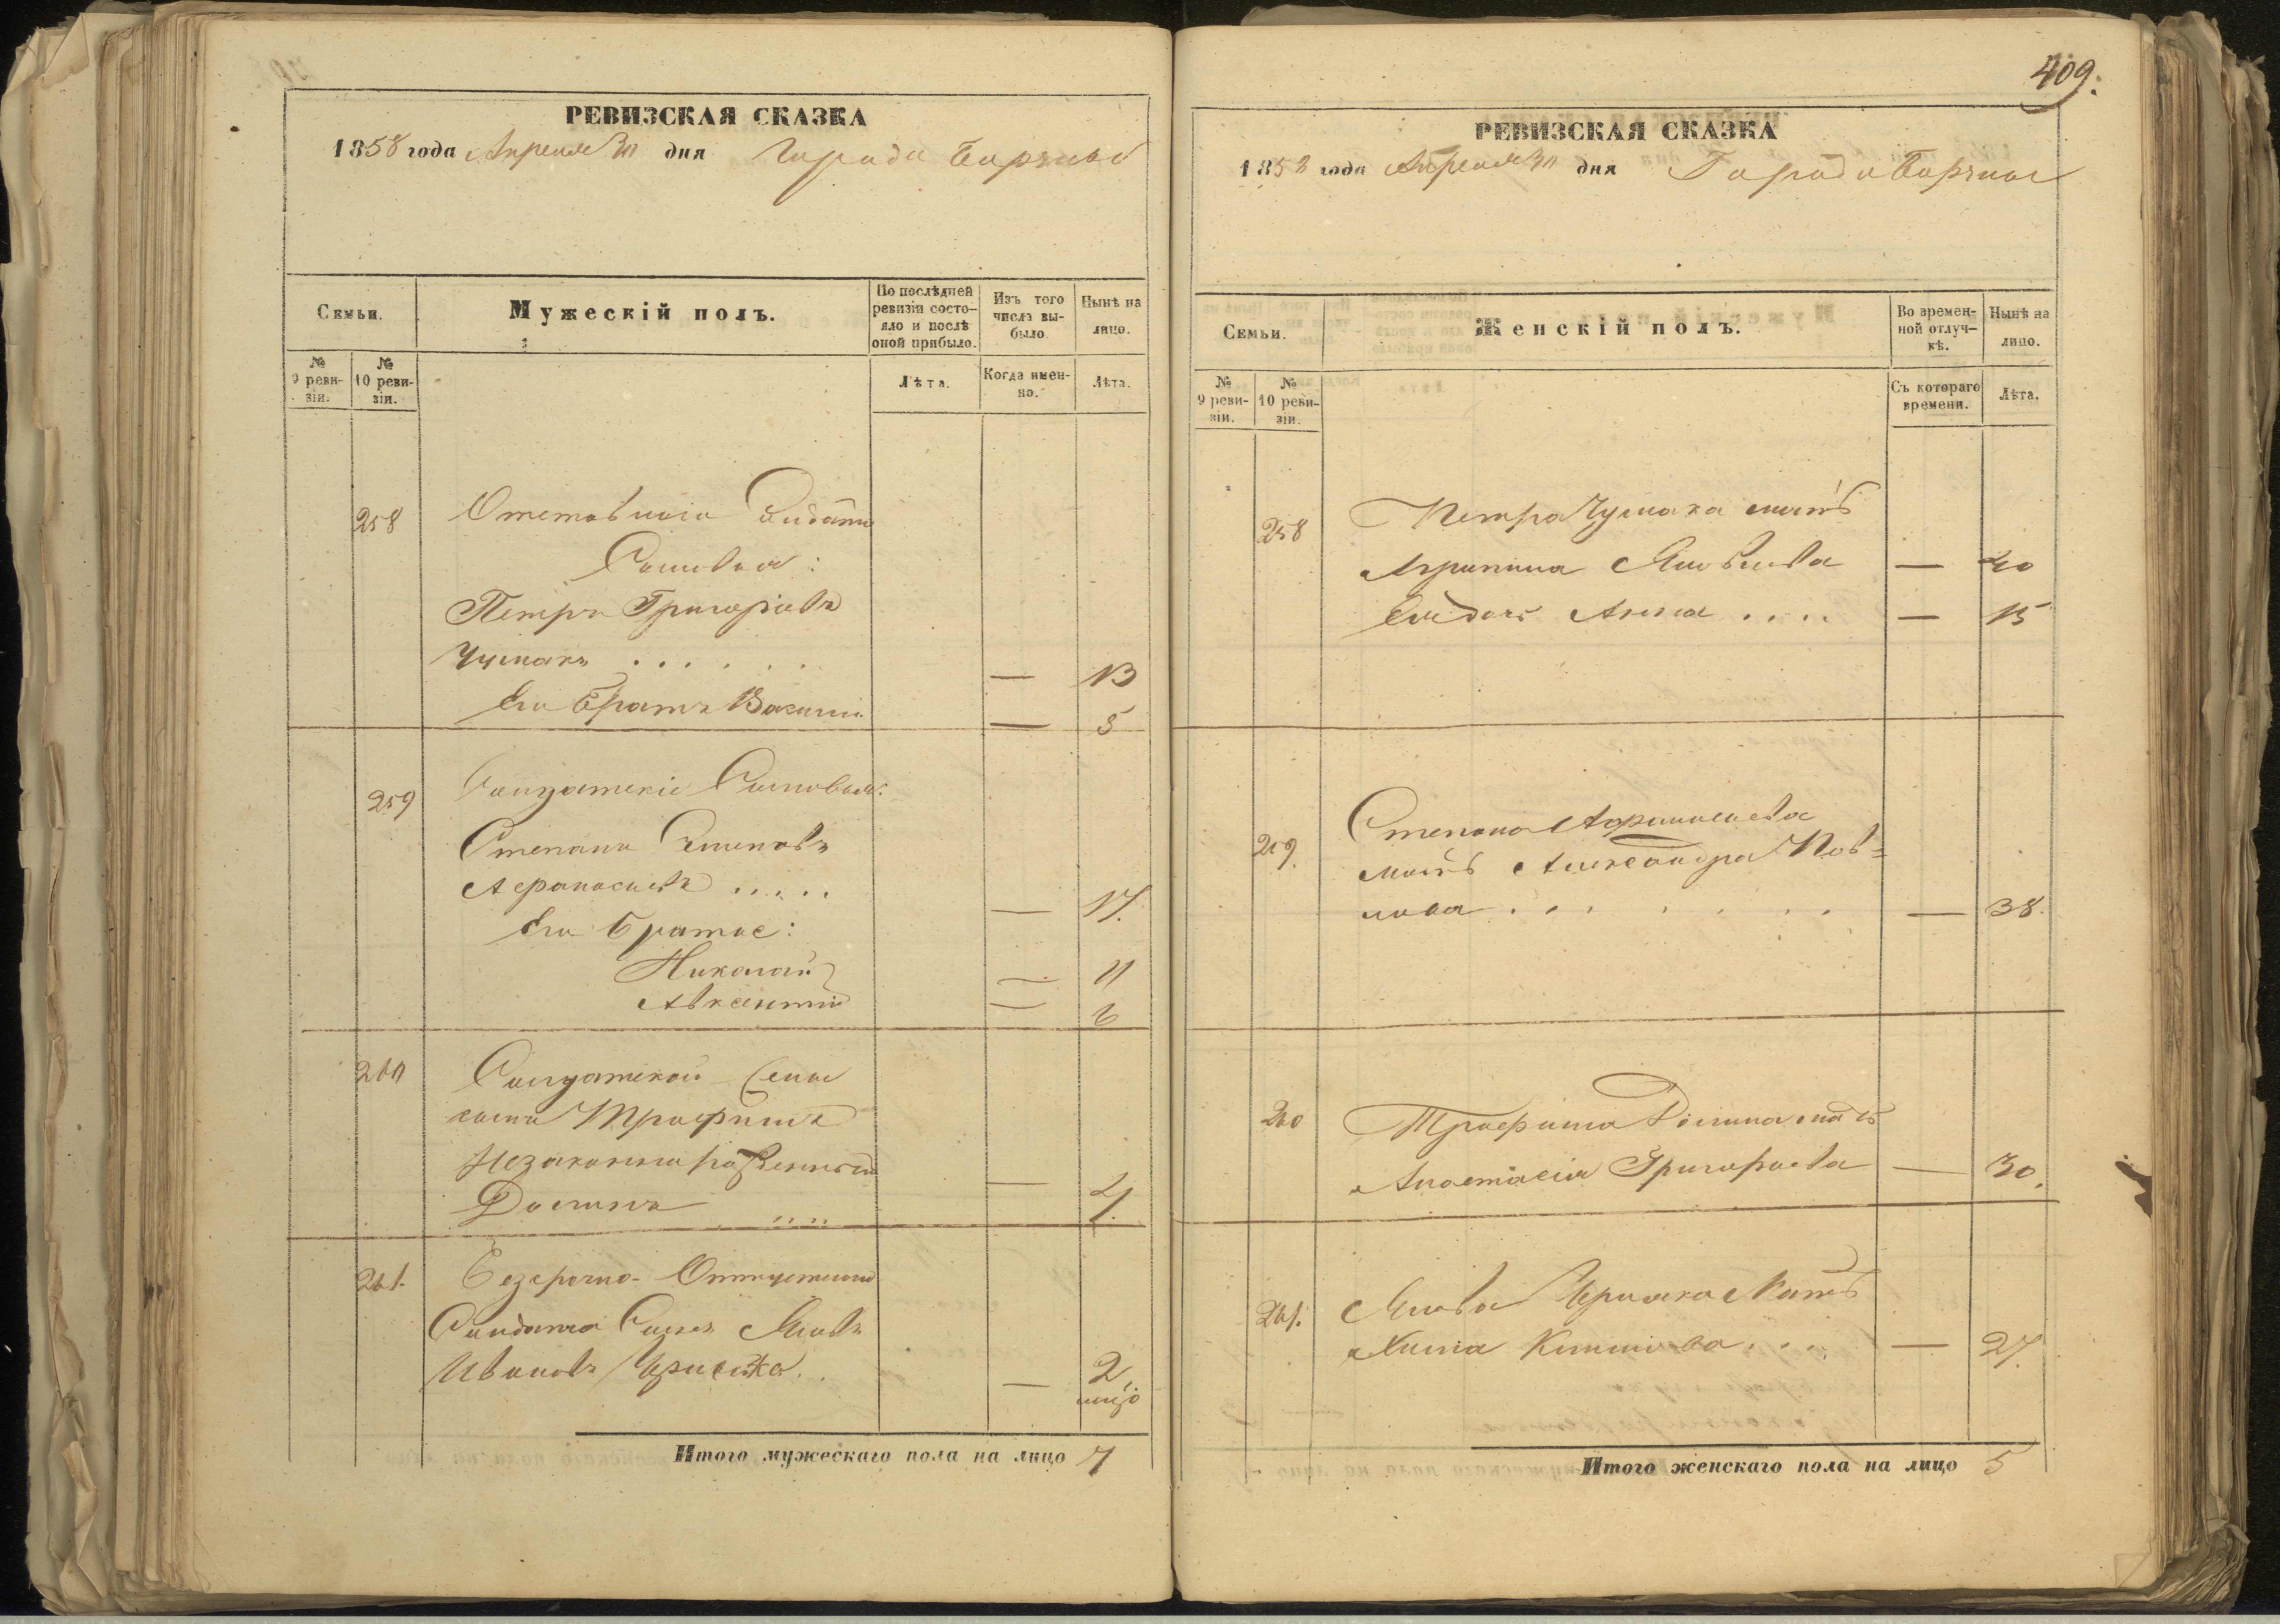 РЕВИЗСКАЯ СКАЗКА
1858 года Апреля 30 дня Города Борзны
Семьи.
Мужескій полъ.
По послѣдней ревизіи состо-
яло и послѣ оной прибыло.
Изъ того числа вы-
было
Нынѣ на лицо.
№ 9 реви-
зіи.
№ 10 реви-
зіи.
Лѣта.
Когда имен-
но.
Лѣта.
258 Отставнаго Солдата
Сыновья:
Петръ Григорьевъ
Чумакъ . . . . . . — 13
Его братъ Василій — 5
259 Солдатскіе Сыновья:
Степанъ
Афанасьевъ . . . . . — 17.
Его братья:
Николай — 11
Авксентий — 6
260 Солдатской
сынъ Трофимъ
Незаконнорожденный
— 4.
261. Безсрочно-Отпускнаго
Солдата Сынъ Яковъ
Ивановъ . . — 2
Итого мужескаго пола на лицо 7
409.
РЕВИЗСКАЯ СКАЗКА
1858 года Апреля 30 дня Города Борзны
Семьи.
Женскій полъ.
Во времен-
ной отлуч-
кѣ.
Нынѣ на лицо.
№ 9 реви-
зіи.
№ 10 реви-
зіи.
Съ котораго времени.
Лѣта.
258 Петра Чумака мать
Агрипина Яковлева — 40
Анна . . . . — 15
259. Степана Афанасьева
мать Александра Пав=
лова . . . . . . . — 38.
260 Трофима мать
Анастасія Григорьева — 30.
261. Якова мать
— 27.
Итого женскаго пола на лицо 5